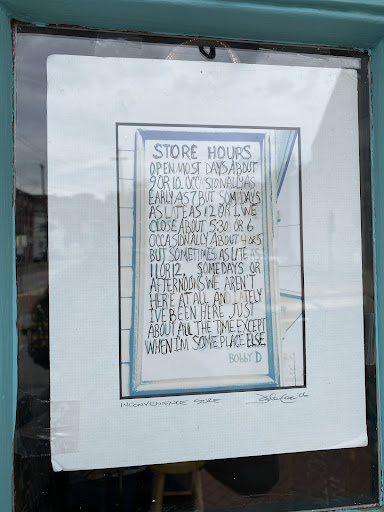 STORE HOURS
OPEN MOST DAYS ABOUT
9 OR 10. OCCASIONALLY AS
EARLY AS 7 BUT SOM DAYS
AS LATE AS 12 OR 1. WE
CLOSE ABOUT 5:30 OR 6
OCCASIONALLY ABOUT 4 OR 5
BUT SOMETIMES AS LATE AS
11 OR 12. SOMEDAYS OR
AFTERNOONS WE AREN'T
HERE AT ALL AND LATELY
I'VE BEEN HERE JUST
ABOUT ALL THE TIME EXCEPT
WHEN I'M SOME PLACE ELSE
BOBBY D
INCONVENIENCE STORE